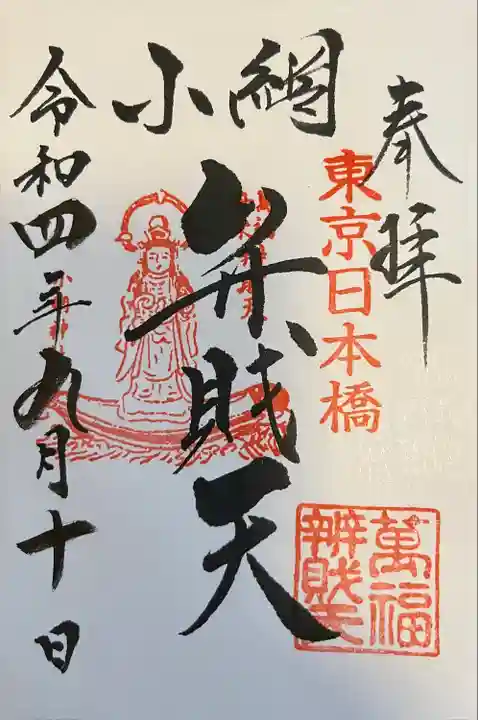 奉拝
東京日本橋
小網
弁財天
令和四年九月十日
萬福
辨財天